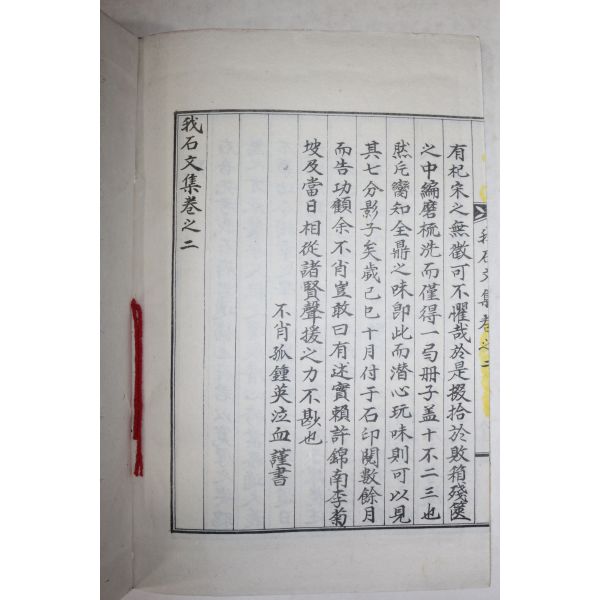 我石文集卷之二
有杞宋之無徵可不懼哉於是掇拾於敗箱殘篋
之中編磨梳洗而僅得一弓册子盖十不二三也
然片臠知全鼎之味卽此而潛心玩味則可以見
其七分影子矣歲己巳十月付于石印閱數餘月
而告功顧余不肖豈敢曰有述實賴許錦南李菊
坡及當日相從諸賢聲援之力不尠也
不肖孤鍾英泣血謹書
我石文集卷之二